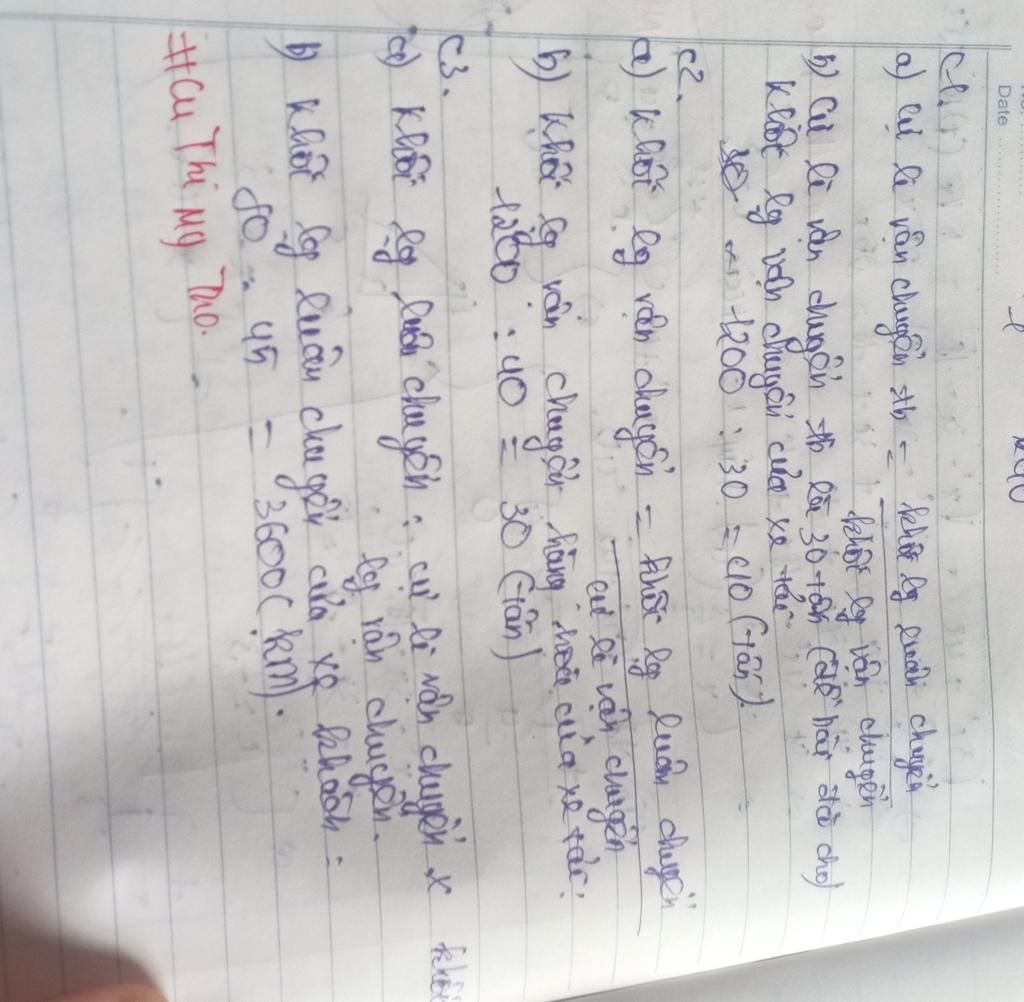 Date
C1.
a) Cự li vận chuyển tb = khối lg luân chuyển
khối lg vận chuyển
b) Cự li vận chuyển tb là 30 tấn (đề bài đã cho)
khối lg vận chuyển của xe tải
1200 : 30 = 40 (tấn).
C2.
a) khối lg vận chuyển = khối lg luân chuyển
cự li vận chuyển
b) khối lg vận chuyển hàng hoá của xe tải:
1200 : 40 = 30 (tấn)
C3.
a) khối lg luân chuyển: cự li vận chuyển x khối
lg vận chuyển.
b) khối lg luân chuyển của xe khách:
80 . 45 = 3600 (km).
#Cu Thi Mg Tho.